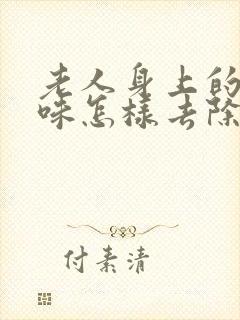 老人身上的
味怎样去除
付素清